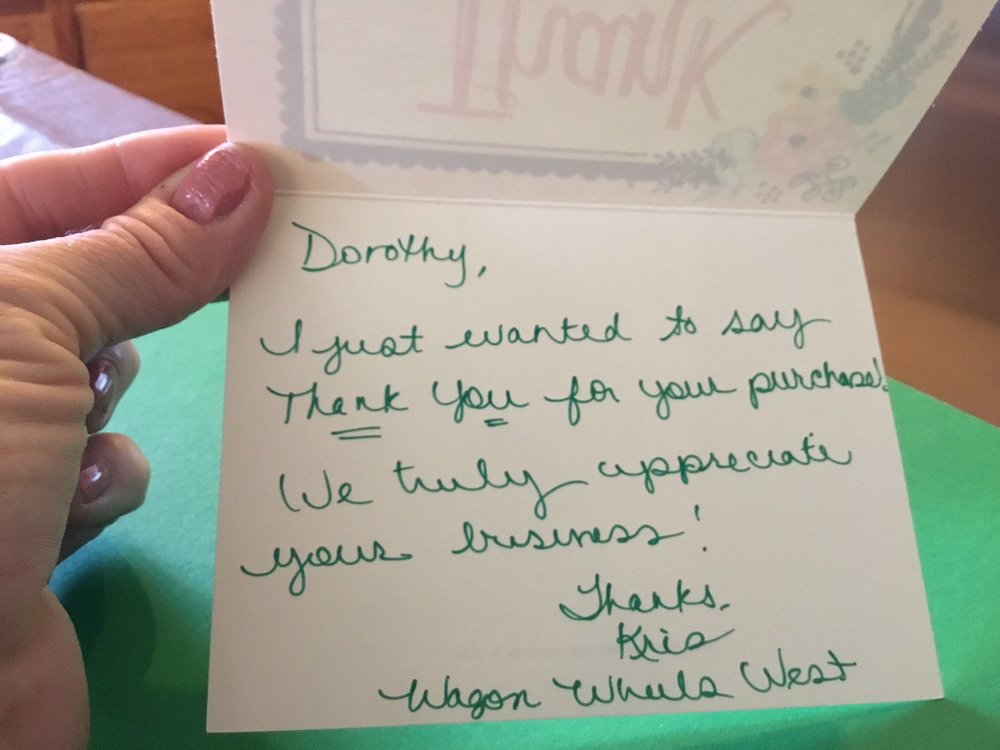 Thank
Dorothy,
I just wanted to say
Thank You for your purchase!
We truly appreciate
your business!
Thanks,
Kris
Wagon Wheels West